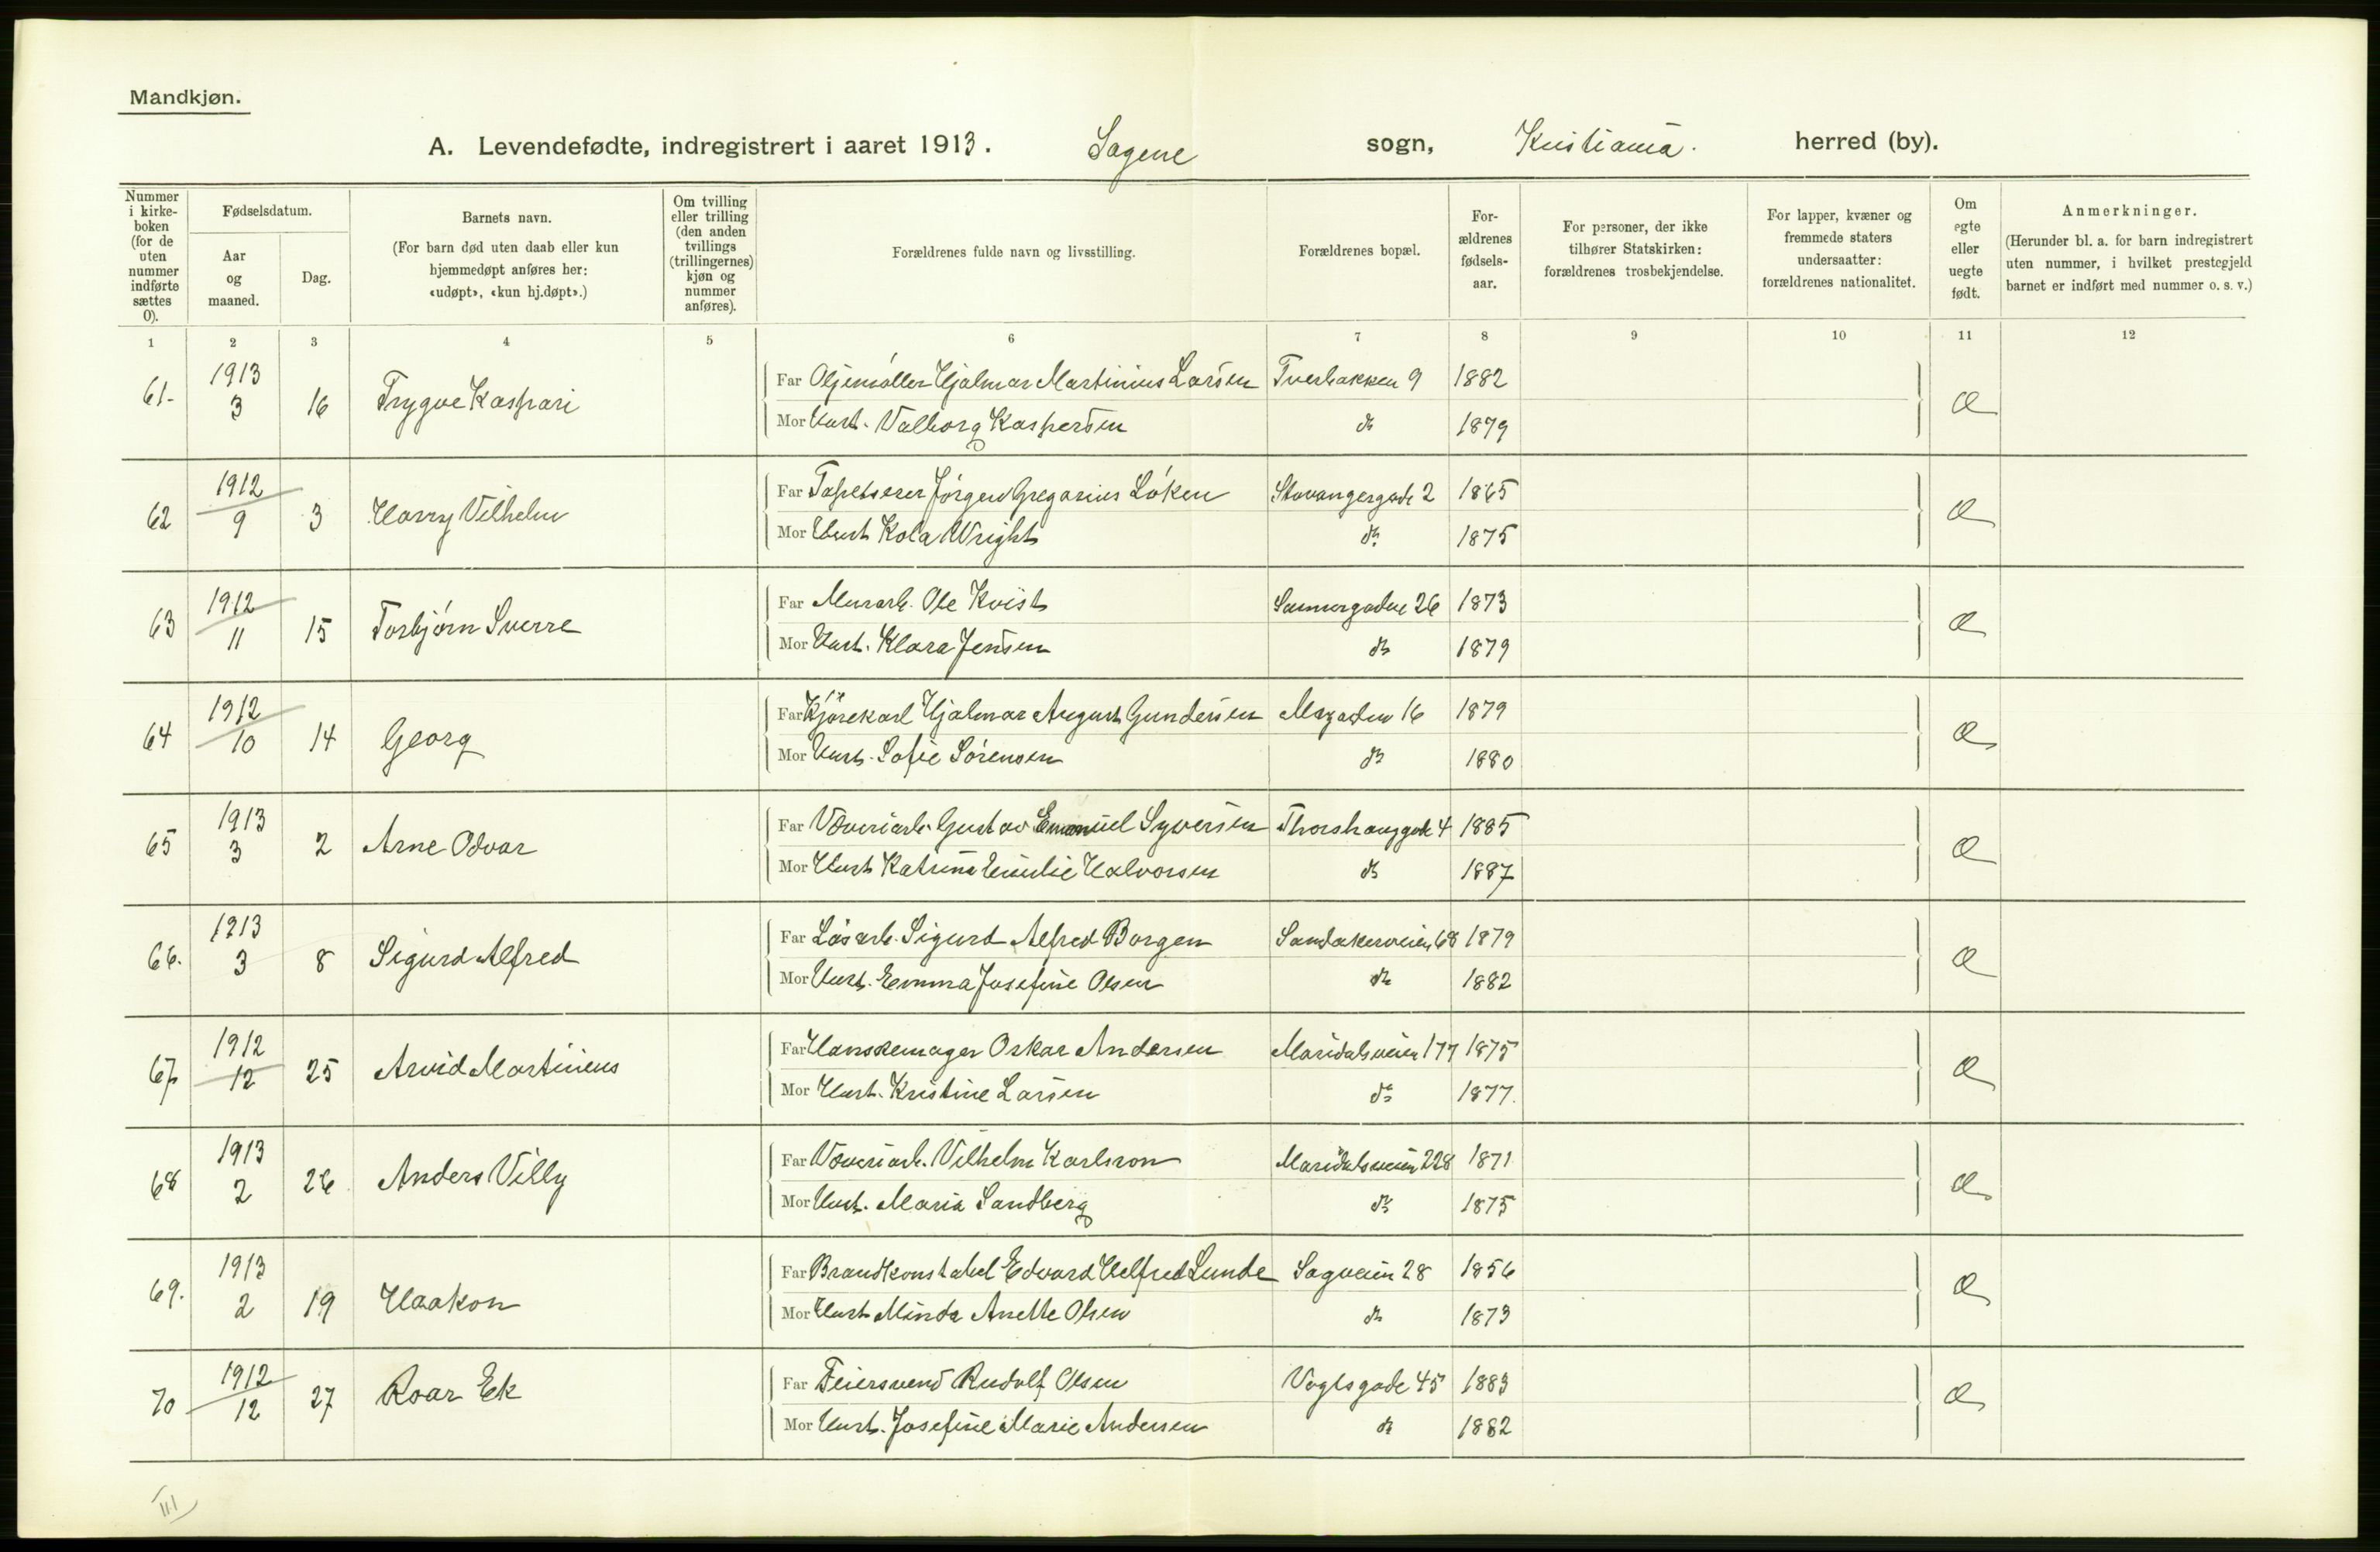 Mandkjøn.
A. Levendefødte, indregistrert i aaret 1913. Sagene sogn, Kristiania. herred (by).
Nummer i kirke-boken (for de uten nummer indførte sættes 0).
Fødselsdatum.
Aar og maaned.
Dag.
Barnets navn.
(For barn død uten daab eller kun hjemmedøpt anføres her: «udøpt», «kun hj.døpt».)
Om tvilling eller trilling (den anden tvillings (trillingernes) kjøn og nummer anføres).
Forældrenes fulde navn og livsstilling.
Forældrenes bopæl.
For-ældrenes fødsels-aar.
For personer, der ikke tilhører Statskirken: forældrenes trosbekjendelse.
For lapper, kvæner og fremmede staters undersaatter: forældrenes nationalitet.
Om egte eller uegte født.
Anmerkninger.
(Herunder bl. a. for barn indregistrert uten nummer, i hvilket prestegjeld barnet er indført med nummer o. s. v.)
1 2 3 4 5 6 7 8 9 10 11 12
61. 1913 3 16 Trygve Kaspari Far Oljemøller Hjalmar Martinius Larsen Tverbakken 9 1882
Mor Hust. Valborg Kaspersen do 1879
62 1912 9 3 Harry Vilhelm Far Tapetserer Jørgen Gregarius Løken Stavangergade 2 1865
Mor Hust Kola Wright do 1875
63 1912 11 15 Torbjørn Sverre Far Murarb. Ole Kvist 26 1873
Mor Hust. Klara Jensen do 1879
64 1912 10 14 Georg Far Kjørekarl Hjalmar August Gundersen 16 1879
Mor Hust. Sofie Sørensen do 1880
65 1913 3 2 Arne Odvar Far Væveriarb. Gustav Emanuel Syversen Thorshauggade 4 1885
Mor Hust Katrine Emilie Halvorsen do 1887
66. 1913 3 8 Sigurd Alfred Far Løsarb. Sigurd Alfred Borgen Sandakerveien 68 1879
Mor Hust. Emma Josefine Olsen do 1882
67 1912 12 25 Arvid Martinius Far Hanskemager Oskar Andersen Maridalsveien 177 1875
Mor Hust. Kristine Larsen do 1877.
68 1913 2 26 Anders Villy Far Væveriarb. Vilhelm Karlsson Maridalsveien 228 1871
Mor Hust. Maria Sandberg do 1875
69. 1913 2 19 Haakon Far Brandkonstabel Edvard Helfred Lunde Sagveien 28 1856
Mor Hust Minda Anette Olsen do 1873
70 1912 12 27 Roar Ek Far Feiersvend Rudolf Olsen Vogtsgade 45 1883
Mor Hust. Josefine Marie Andersen do 1882
III